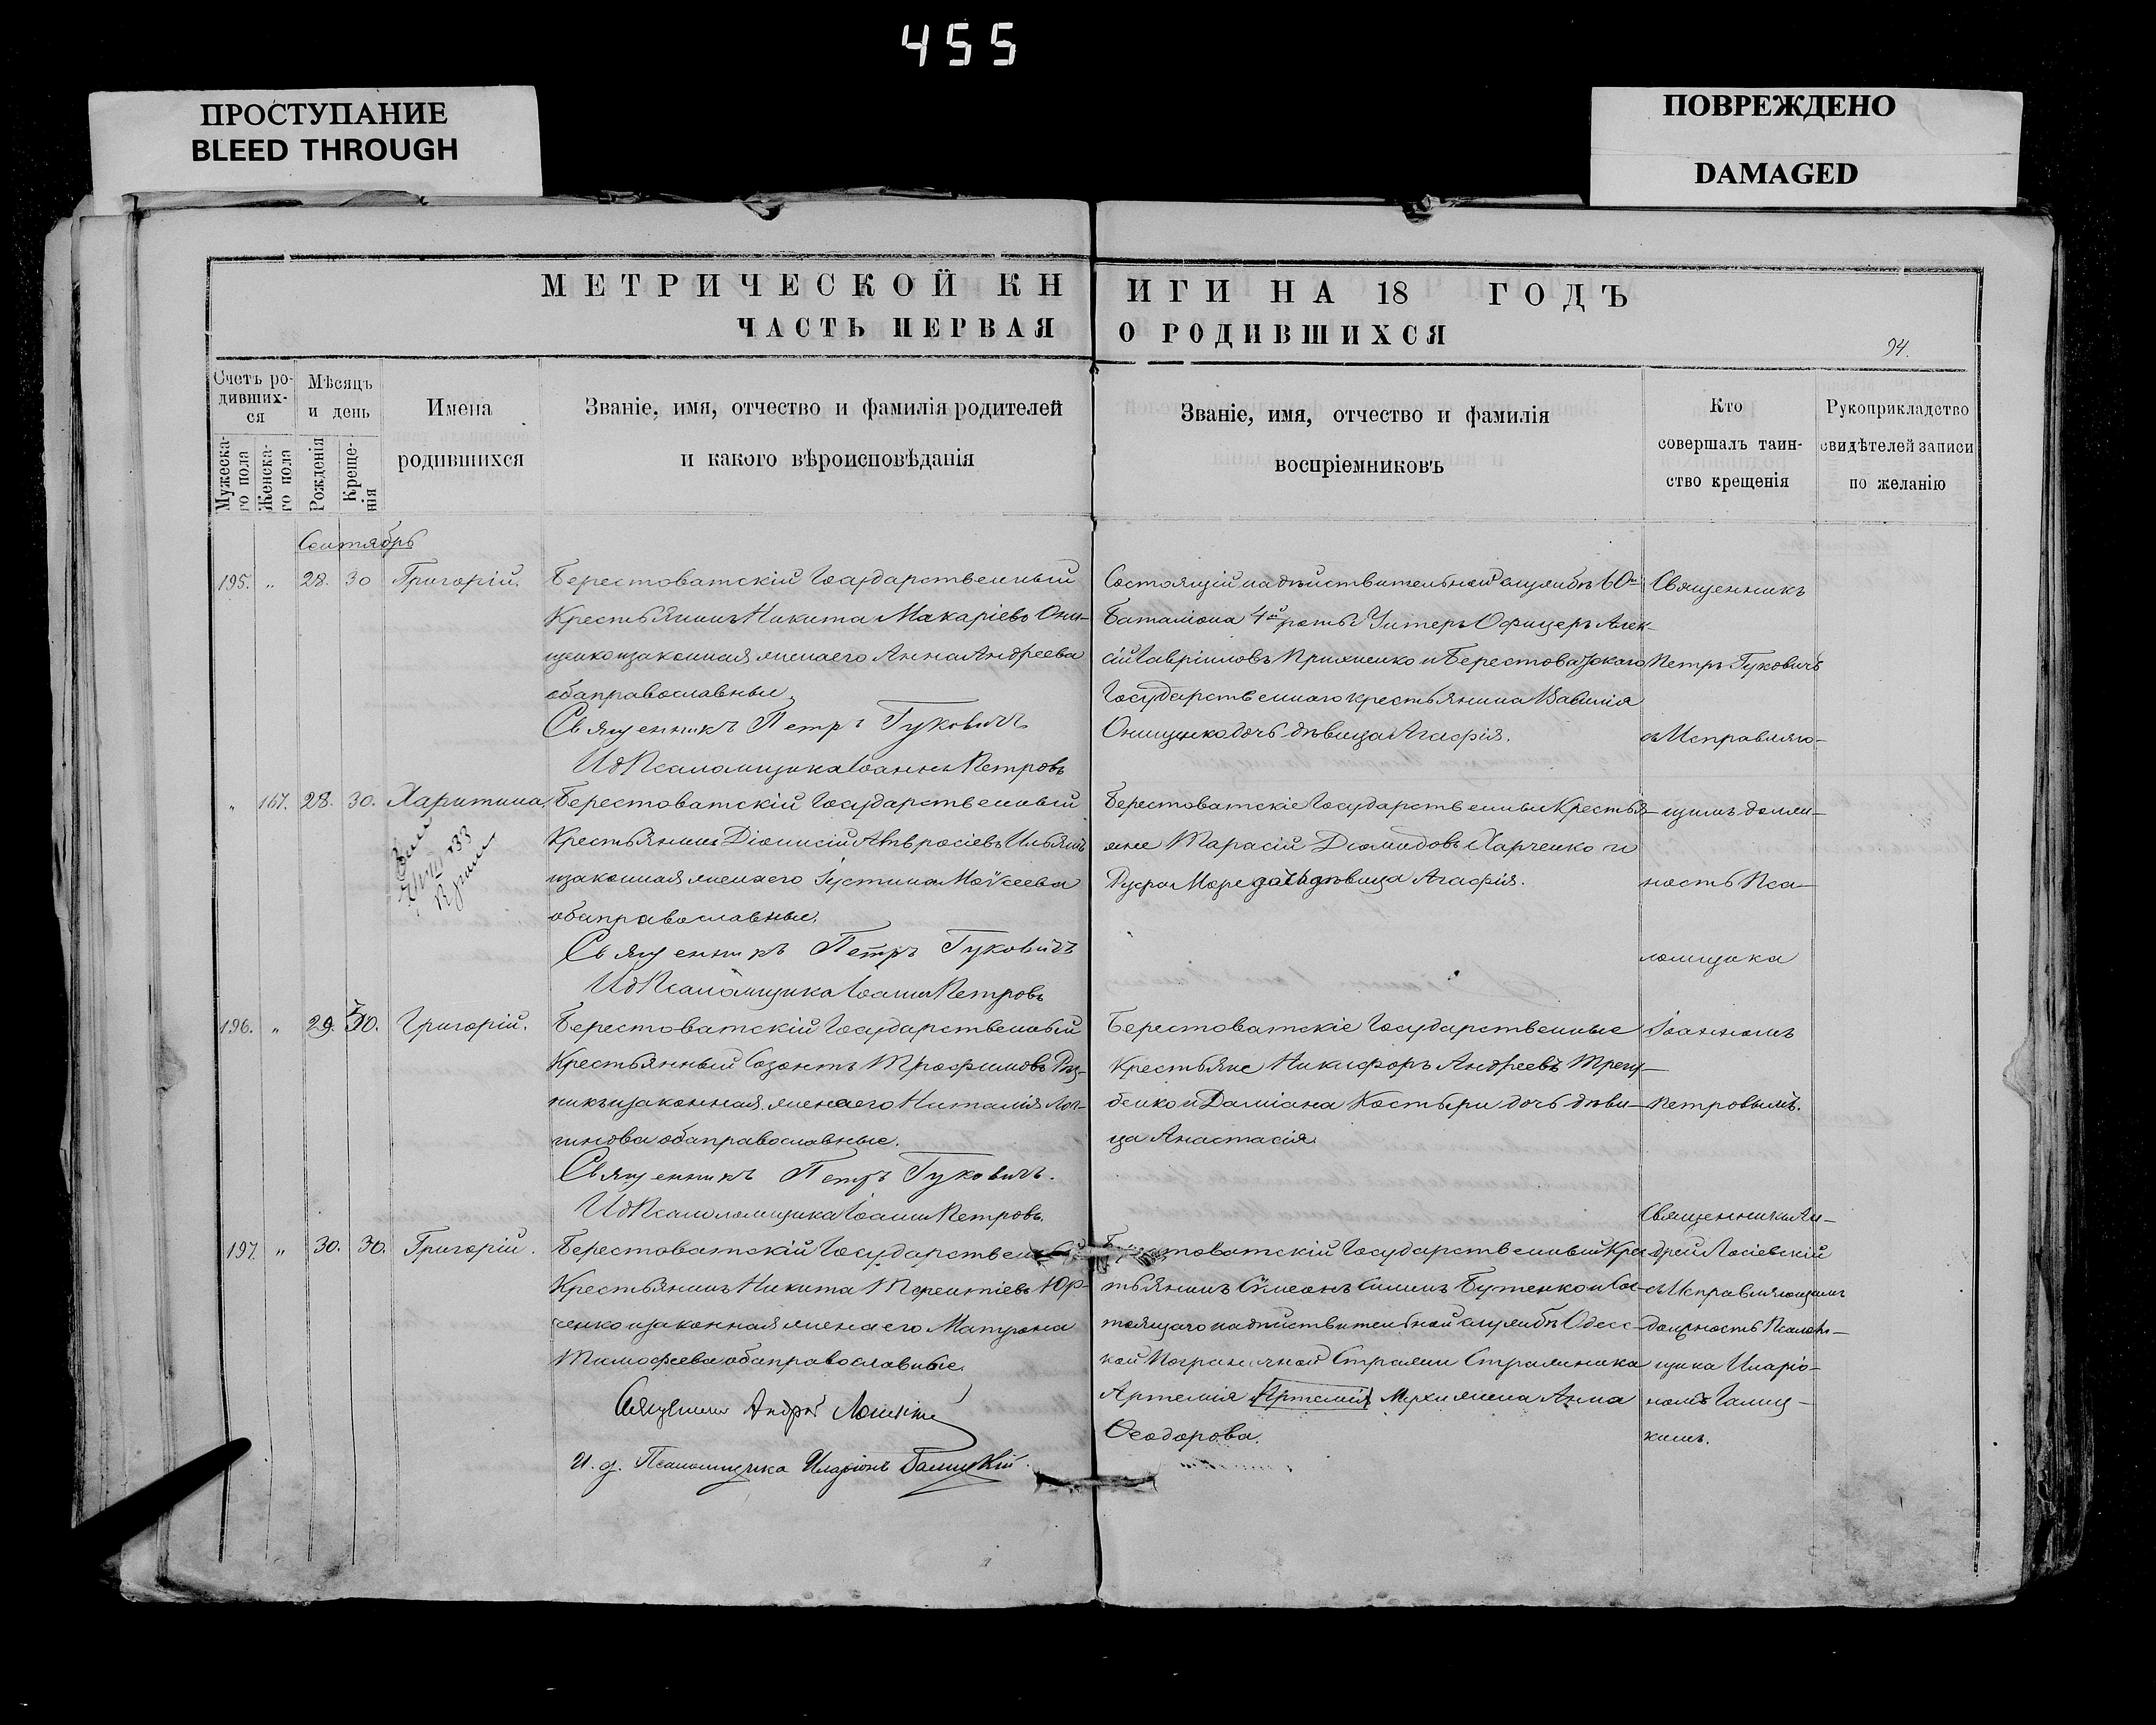 455
ПРОСТУПАНИЕ
BLEED THROUGH
ПОВРЕЖДЕНО
DAMAGED
МЕТРИЧЕСКОЙ КН
ИГИ НА 18 ГОДЪ
ЧАСТЬ ПЕРВАЯ
О РОДИВШИХСЯ
94.
Счетъ ро-
дивших-
ся
Мужеска-
го пола
Женска-
го пола
Мѣсяцъ
и день
Рожденія
Креще-
нія
Имена
родившихся
Званіе, имя, отчество и фамилія родителей
и какого вѣроисповѣданія
Званіе, имя, отчество и фамилія
воспріемниковъ
Кто
совершалъ таин-
ство крещенія
Рукоприкладство
свидѣтелей записи
по желанію
Сентябрь
195. „ 28. 30 Григорій.
Берестоватскій Государственный
Крестьянинъ Никита Макаріевъ Они-
щенко и законная жена его Анна Андреева
оба православные.
Священникъ Петръ Гуковичъ
И д Псаломщика Іоаннъ Петровъ
Состоящій на дѣйствительной службѣ 60го
Баталіона 4й роты Унтеръ Офицеръ Алек-
сій Гавріиловъ и Берестоватскаго
Государственнаго крестьянина Василія
Онищенко дочь дѣвица Агафія.
Священникъ
Петръ Гуковичъ
съ Исправляю-
„ 167. 28. 30. Харитина
Берестоватскій Государственный
Крестьянинъ Діонисій Амвросіевъ
и законная жена его Іустина Моѵсеева
оба православные.
Священникъ Петръ Гуковичъ
И д Псаломщика Іоаннъ Петровъ
Берестоватскіе Государственные Крестья-
не Тарасій Діомидовъ Харченко и
Руфа дочь дѣвица Агафія.
щимъ долж-
ность Пса-
ломщика
196. „ 29. 30. Григорій.
Берестоватскій Государственный
Крестьянинъ Созонтъ Трофимовъ Рѣз-
никъ и законная жена его Наталія Лог-
гинова оба православные.
Священникъ Петръ Гуковичъ.
И д Псаломщика Іоаннъ Петровъ.
Берестоватскіе Государственные
Крестьяне Никифоръ Андреевъ
и Даміана Костыри дочь дѣви-
ца Анастасія.
Іоанномъ
Петровымъ.
197. „ 30. 30. Григорій.
Берестоватскій Государственный
Крестьянинъ Никита Терентіевъ Юр-
ченко и законная жена его Матрона
Тимофеева оба православные.
Священникъ Андрей
И. д. Псаломщика Иларіонъ Галицкій.
Берестоватскій Государственный Крес-
тьянинъ Сѵмеонъ Бутенко и Сос-
тоящаго на дѣйствительной службѣ Одесс-
кой Пограничной Стражи Стражника
Артемія жена Анна
Ѳеодорова.
Священникъ Ан-
дрей
съ Исправляющимъ
должность Псалом-
щика Иларіо-
номъ Галиц-
кимъ.